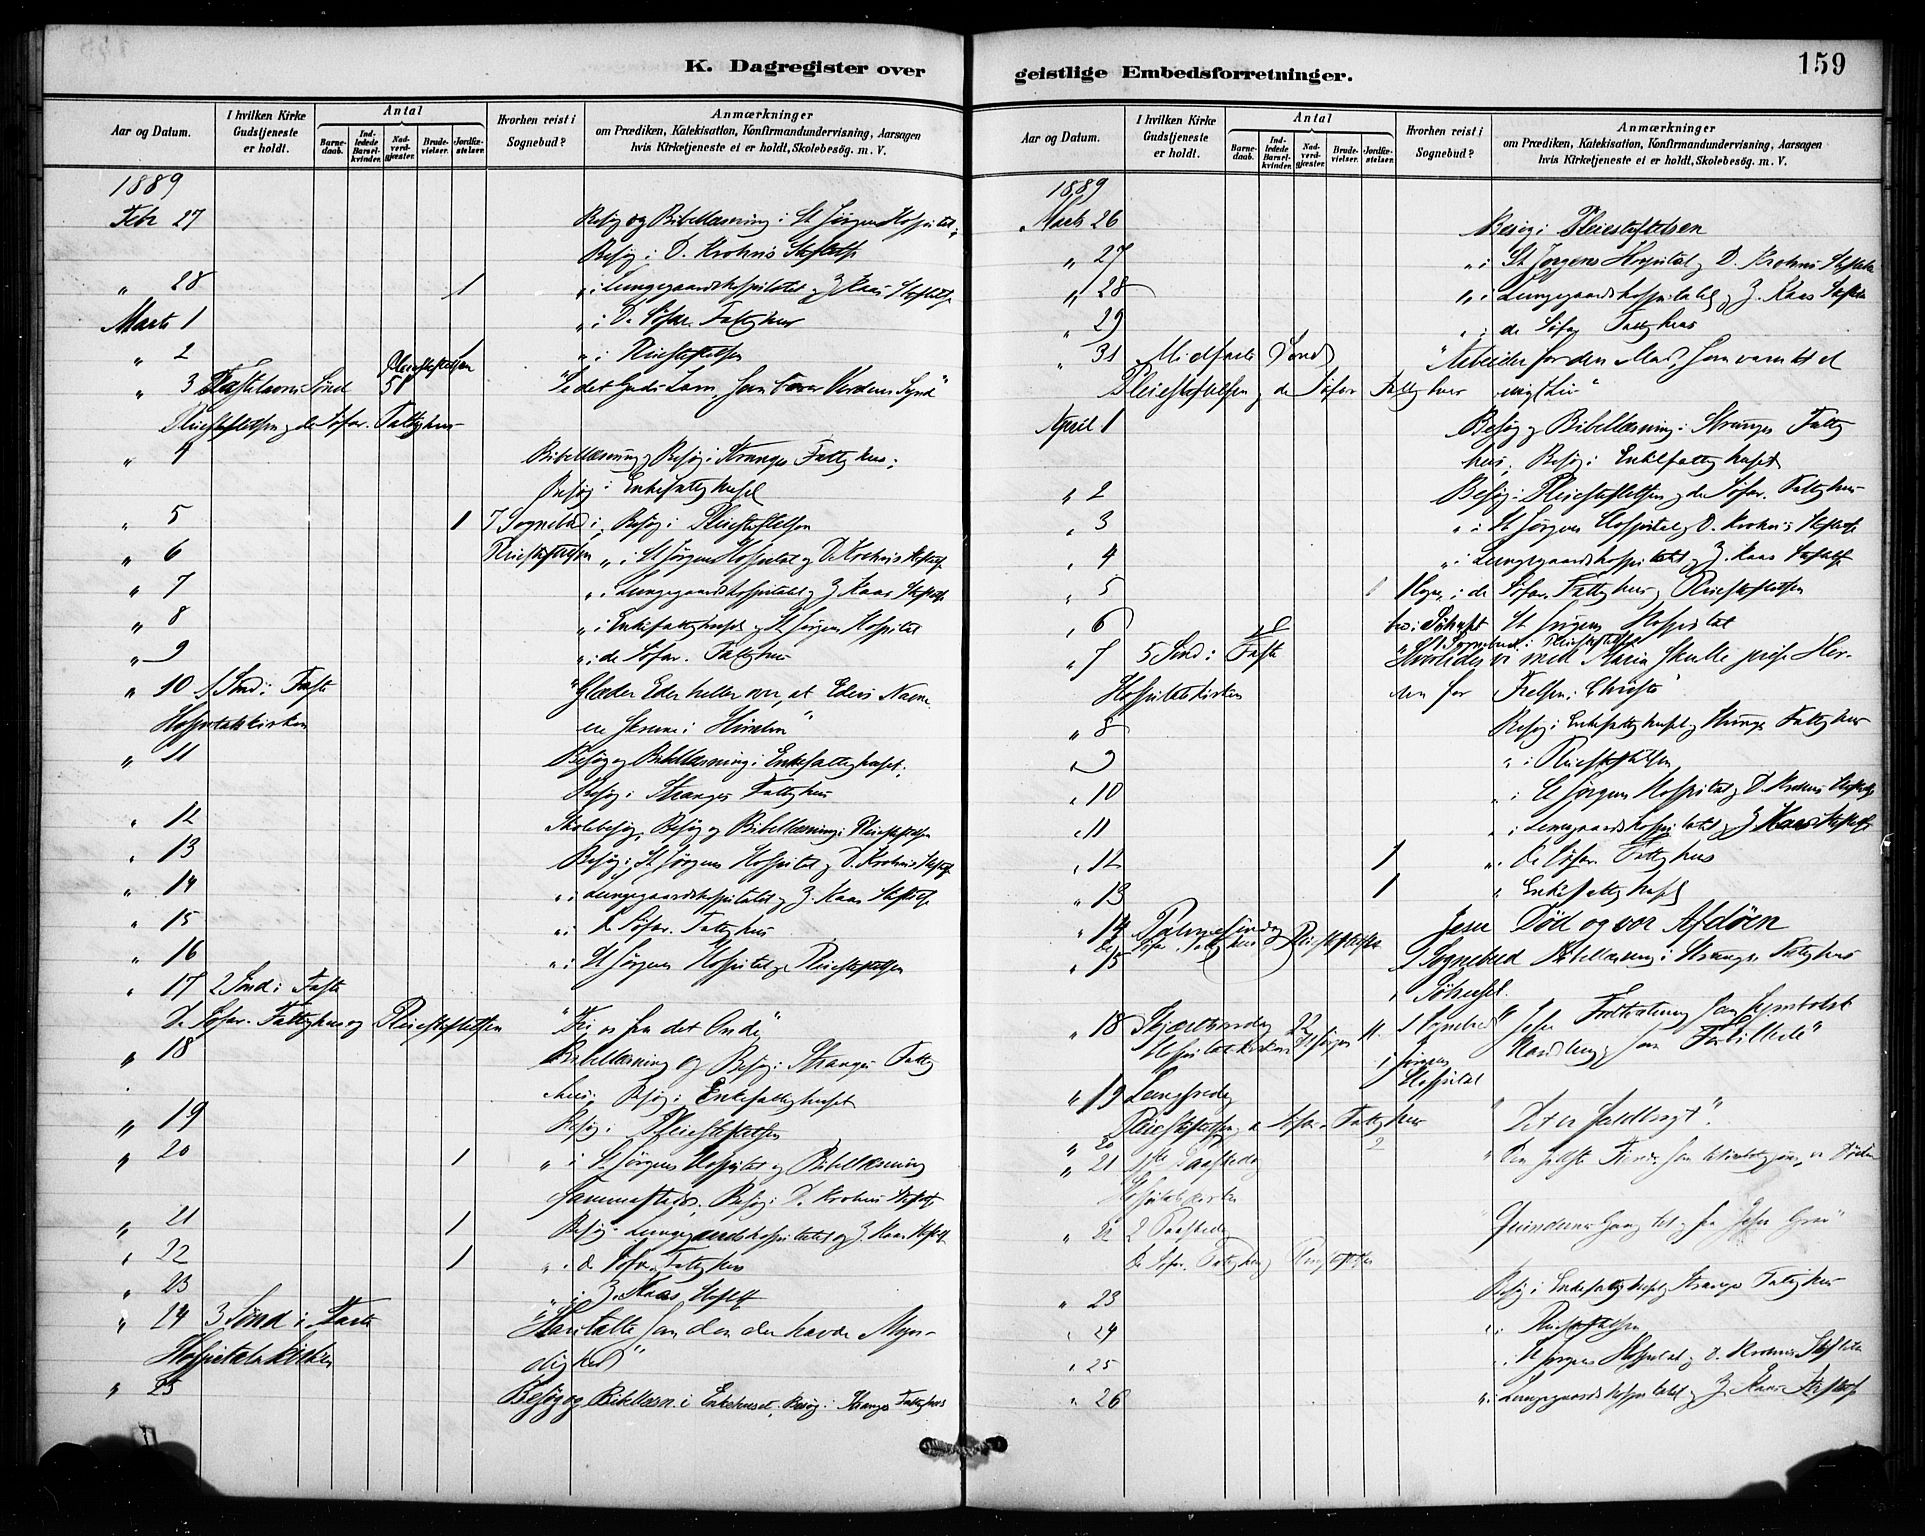 K. Dagregister over
Aar og Datum.
I hvilken Kirke Gudstjeneste er holdt.
Antal
Barnedaab.
Indledede Barselkvinder.
Nadverdgjester.
Brudevielser.
Jordfæstelser.
Hvorhen reist i Sognebud?
Anmærkninger
om Prædiken, Katekisation, Konfirmandundervisning, Aarsagen
hvis Kirketjeneste ei er holdt, Skolebesøg. m. V.
1889
Febr 27 Besøg og Bibellæsning i St Jørgens Hospital,
Besøg i D. Krohns Stiftelse
" 28 1 " i Lungegaardshospitalet og Z. Kaas Stiftelse
Marts 1 " i De Søfar. Fattighus
" 2 " i Pleiestiftelsen
Pleiestiftelsen
" 3 Fastelavns Sønd 5 "Se det Guds Lam, som bærer Verdens Synd"
Pleiestiftelsen og de Søfar. Fattighus
" 4 Bibellæsning og Besøg i Stranges Fattighus;
Besøg i Enkefattighuset
" 5 1 7 Sognebud i Besøg i Pleiestiftelsen
" 6 Pleiestiftelsen " i St Jørgens Hospital og D. Krohns Stiftelse
" 7 " i Lungegaardshospitalet og Z. Kaas Stiftelse
" 8 " i Enkefattighuset og St Jørgens Hospital
" 9 " i de Søfar. Fattighus
" 10 1 Sønd i Faste "Glæder Eder heller over, at Eders Navne
Hospitalskirken ere skrevne i Himlen"
" 11 Besøg og Bibellæsning i Enkefattighuset;
Besøg i Stranges Fattighus
" 12 Skolebesøg, Besøg og Bibellæsning i Pleiestiftelsen
" 13 Besøg i St Jørgens Hospital og D. Krohns Stiftelse
" 14 " i Lungegaardshospitalet og Z. Kaas Stiftelse
" 15 " i de Søfar. Fattighus
" 16 " i St Jørgens Hospital og Pleiestiftelsen
" 17 2 Sønd i Faste
De Søfar. Fattighus og Pleiestiftelsen "Fri os fra det Onde"
" 18 Bibellæsning og Besøg i Stranges Fattig
hus; Besøg i Enkefattighuset
" 19 Besøg i Pleiestiftelsen
" 20 1 " i St Jørgens Hospital og Bibellæsning
sammesteds. Besøg i D. Krohns Stiftelse
" 21 1 Besøg i Lungegaardshospitalet og Z. Kaas Stiftelse
" 22 1 " i de Søfar. Fattighus
" 23 " i Z. Kaas Stiftelse
" 24 3 Sønd i Faste "Han talte som den der havde Myn-
Hospitalskirken dighed"
" 25 Besøg og Bibellæsn. i Enkehuset, Besøg i Stranges Fattighus
geistlige Embedsforretninger.
159
Aar og Datum.
I hvilken Kirke Gudstjeneste er holdt.
Antal
Barnedaab.
Indledede Barselkvinder.
Nadverdgjester.
Brudevielser.
Jordfæstelser.
Hvorhen reist i Sognebud?
Anmærkninger
om Prædiken, Katekisation, Konfirmandundervisning, Aarsagen
hvis Kirketjeneste ei er holdt, Skolebesøg. m. V.
1889
Marts 26 Besøg i Pleiestiftelsen
" 27 " i St Jørgens Hospital og D. Krohns Stiftelse
" 28 " i Lungegaardshospitalet og Z. Kaas Stiftelse
" 29 " i de Søfar. Fattighus
" 31 Midfaste Sønd "Arbeider for den Mad, som varer til et
Pleiestiftelsen og de Søfar. Fattighus evigt Liv"
April 1 Besøg og Bibellæsning i Stranges Fattig
hus; Besøg i Enkefattighuset
" 2 Besøg i Pleiestiftelsen og de Søfar. Fattighus
" 3 " i St Jørgens Hospital og D. Krohns Stiftelse
" 4 " i Lungegaardshospitalet og Z. Kaas Stiftelse
" 5 i de Søfar. Fattighus og Pleiestiftelsen
" 6 St Jørgens Hospital
Sognebud i Pleiestiftelsen
" 7 5 Sønd i Faste Hvorledes vi med Maria skulle prise Her-
Hospitalskirken ren for Frelsen i Christo"
" 8 Besøg i Enkefattighuset og Stranges Fattighus
" 9 " i Pleiestiftelsen
" 10 " i St Jørgens Hospital og D. Krohns Stiftelse
" 11 " i Lungegaardshospitalet og Z. Kaas Stiftelse
" 12 1 " i de Søfar. Fattighus
" 13 1 " Enkefattighuset
" 14 Palmesøndag Jesu Død og vor Afdøen
de Søfar. Fattighus og Pleiestiftelsen
" 15 Sognebud Bibellæsning i Stranges Fattighus
i Søhuset.
" 18 Skjærthorsdag 22 1 Sognebud "Jesu Fodtvætning som symbolsk
Hospitalskirken i Jørgens Hospital Handling og som Forbillede"
" 19 Langfredag
Pleiestiftelsen og de Søfar. Fattighus "Det er fuldbragt".
" 20 2
" 21 1ste Paaskedag "Den sidste Fiende, som tilintetgjøres, er Døden
Hospitalskirken
" 22 2 Paaskedag "Qvindernes Gang til og fra Jesu Grav"
De Søfar. Fattighus og Pleiestiftelsen
" 23 Besøg i Enkefattighuset og Stranges Fattighus
" 24 " i Pleiestiftelsen
" 25 " i St Jørgens Hospital og D. Krohns Stiftelse
" 26 " i Lungegaardshospitalet og Z. Kaas Stiftelse